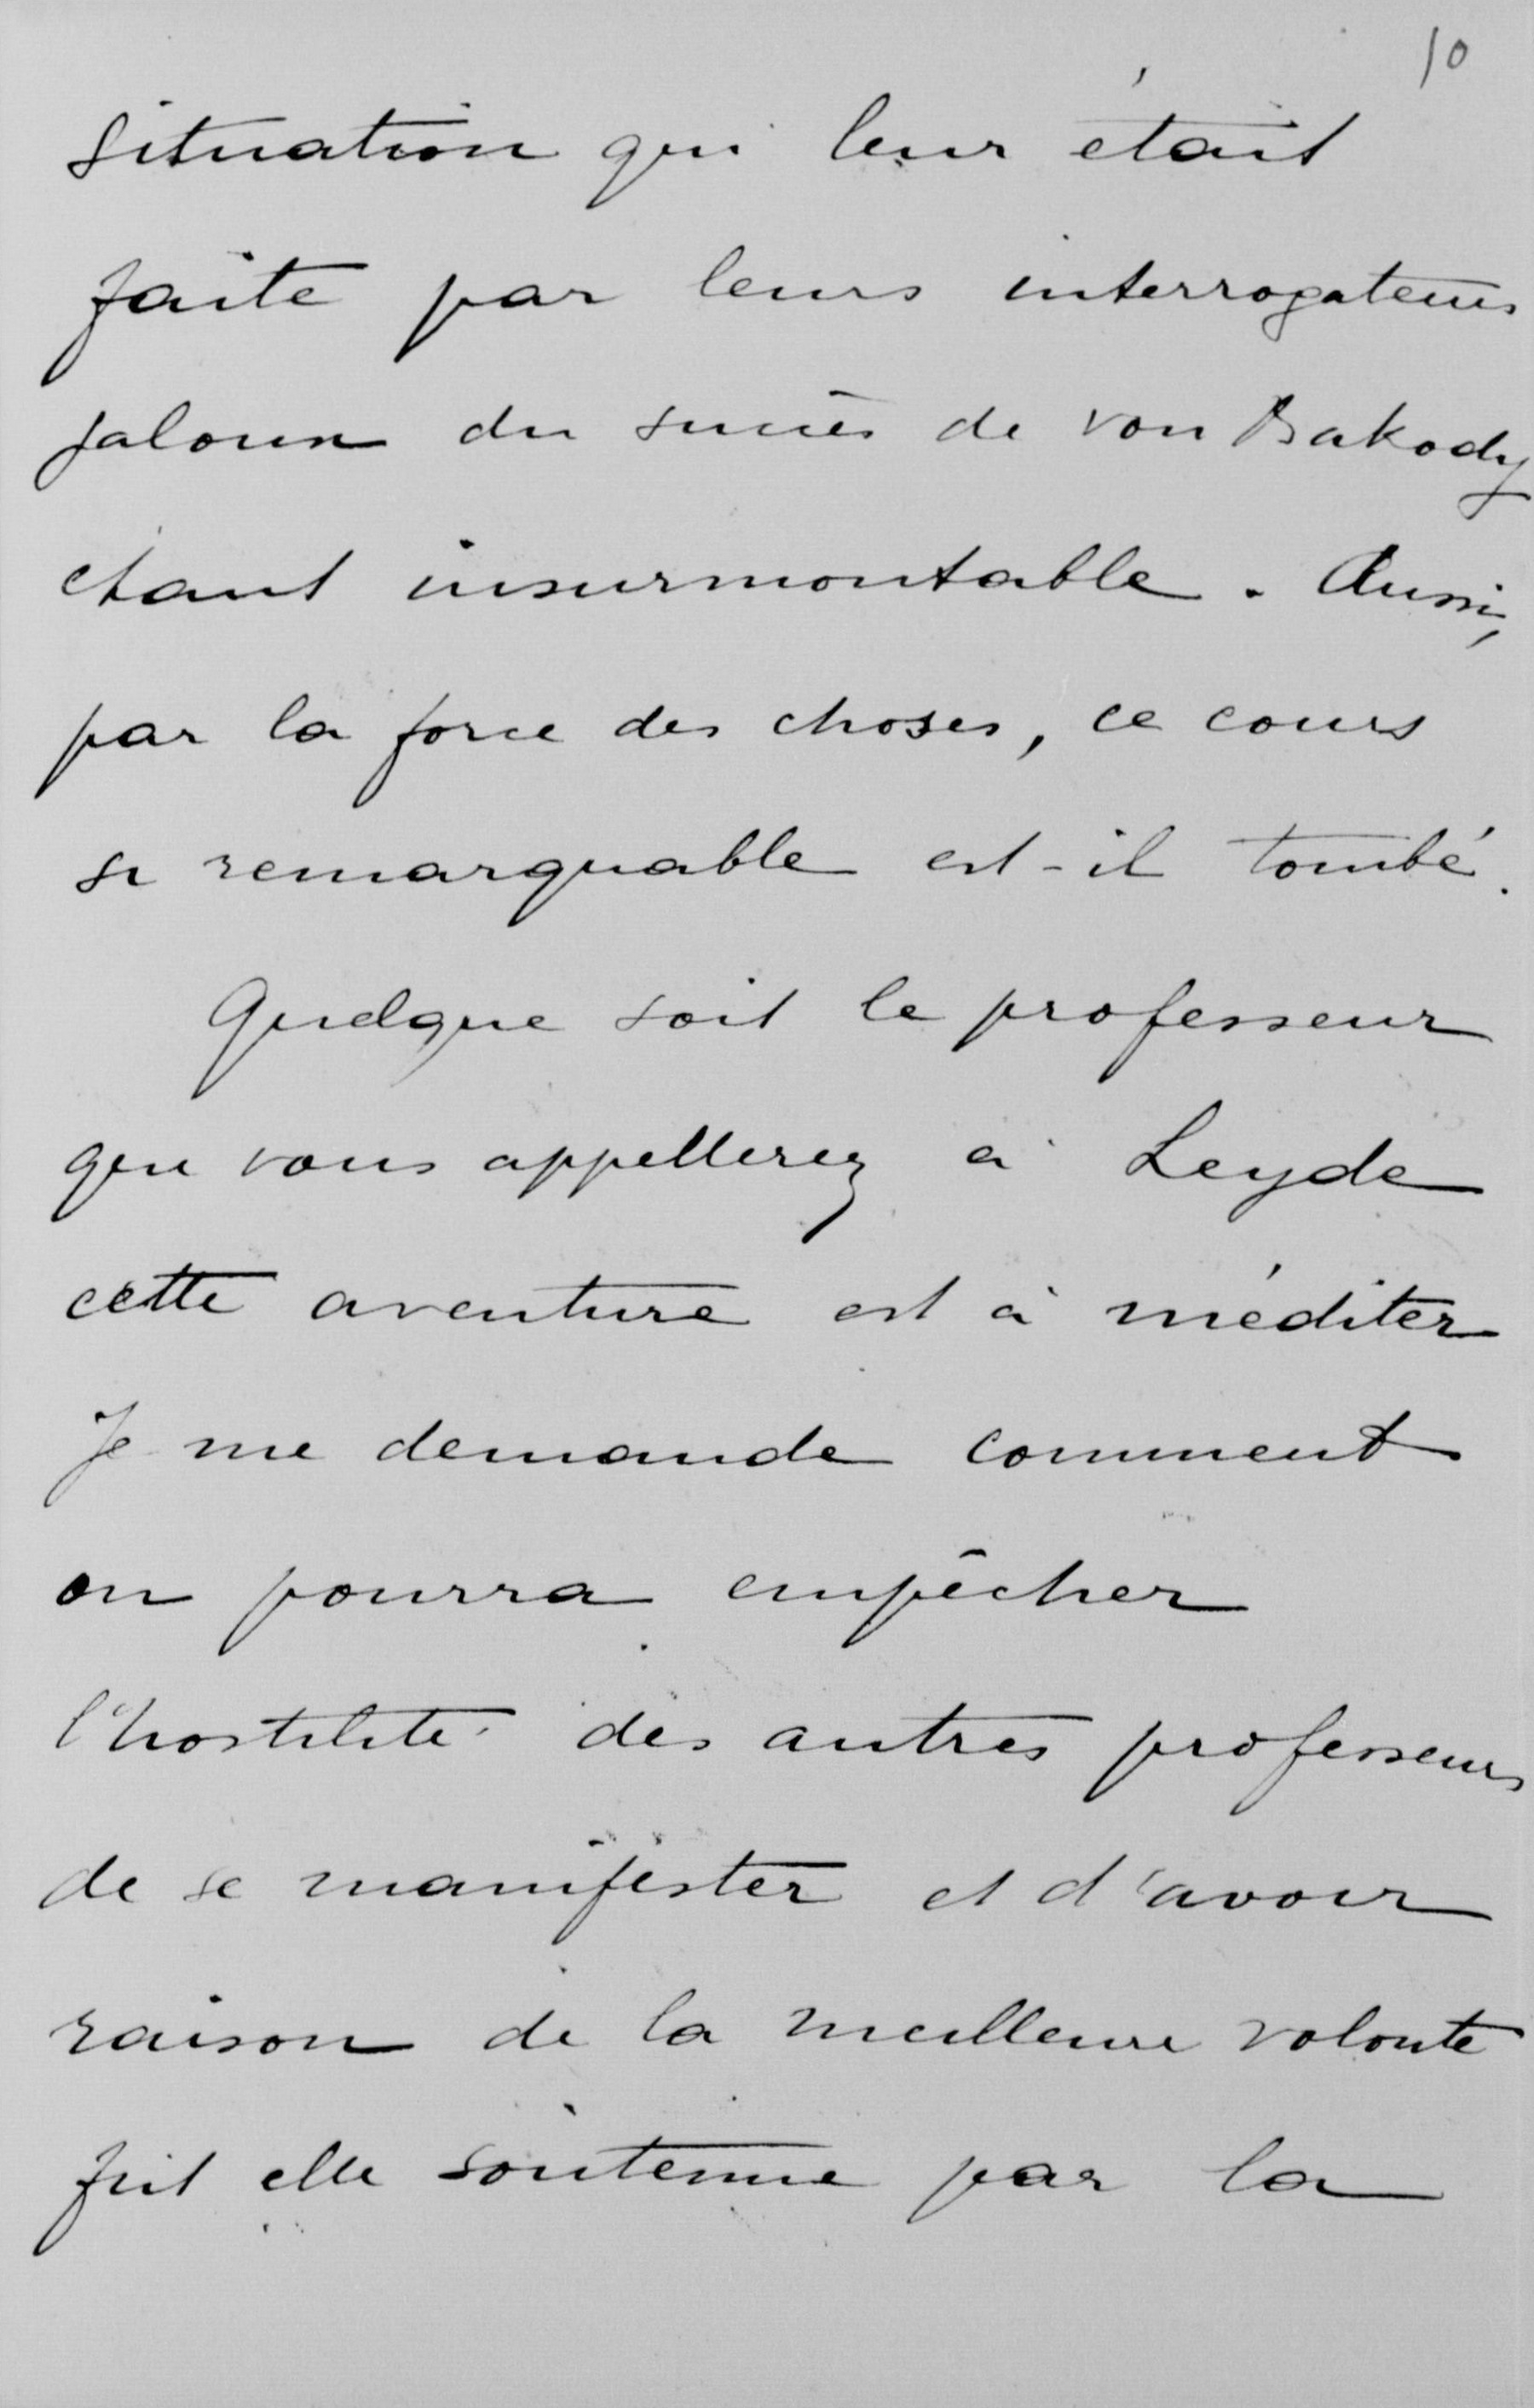 10
situation qui leur était
faite par leurs interrogateurs
jaloux du succès de von Bakody
étant insurmontable. Aussi,
par la force des choses, ce cours
si remarquable est-il tombé.
Quelque soit le professeur
que vous appellerez à Leyde
cette aventure est à méditer
Je me demande comment
on pourra empêcher
l'hostilité des autres professeurs
de se manifester et d'avoir
raison de la meilleure volonté
fut elle soutenue par la